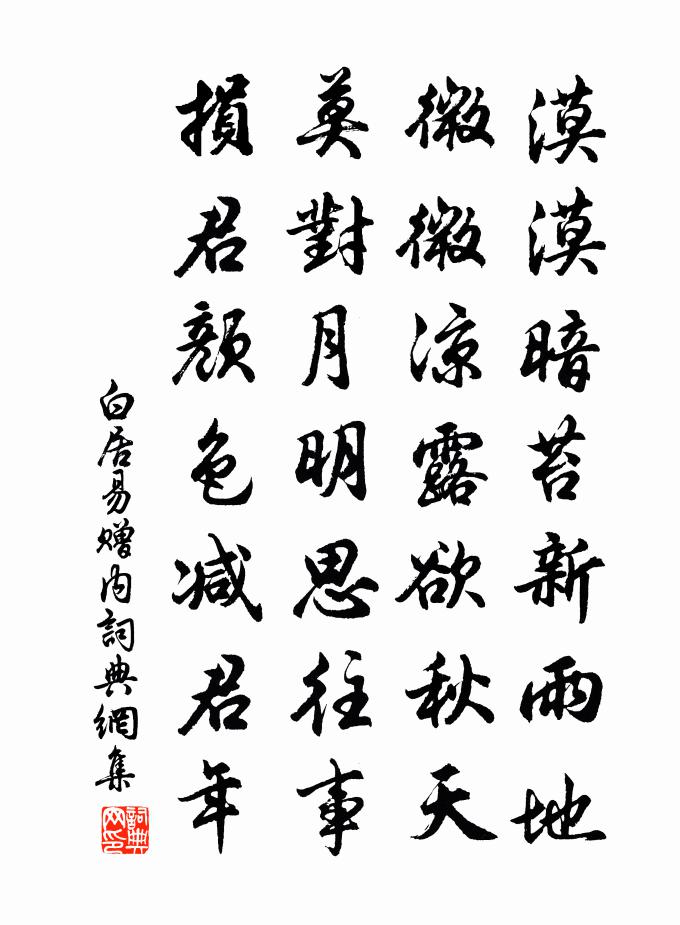 漠漠暗苔新雨地
微微涼露欲秋天
莫對月明思往事
損君顏色減君年
白居易贈內詞典網集
詞典网印